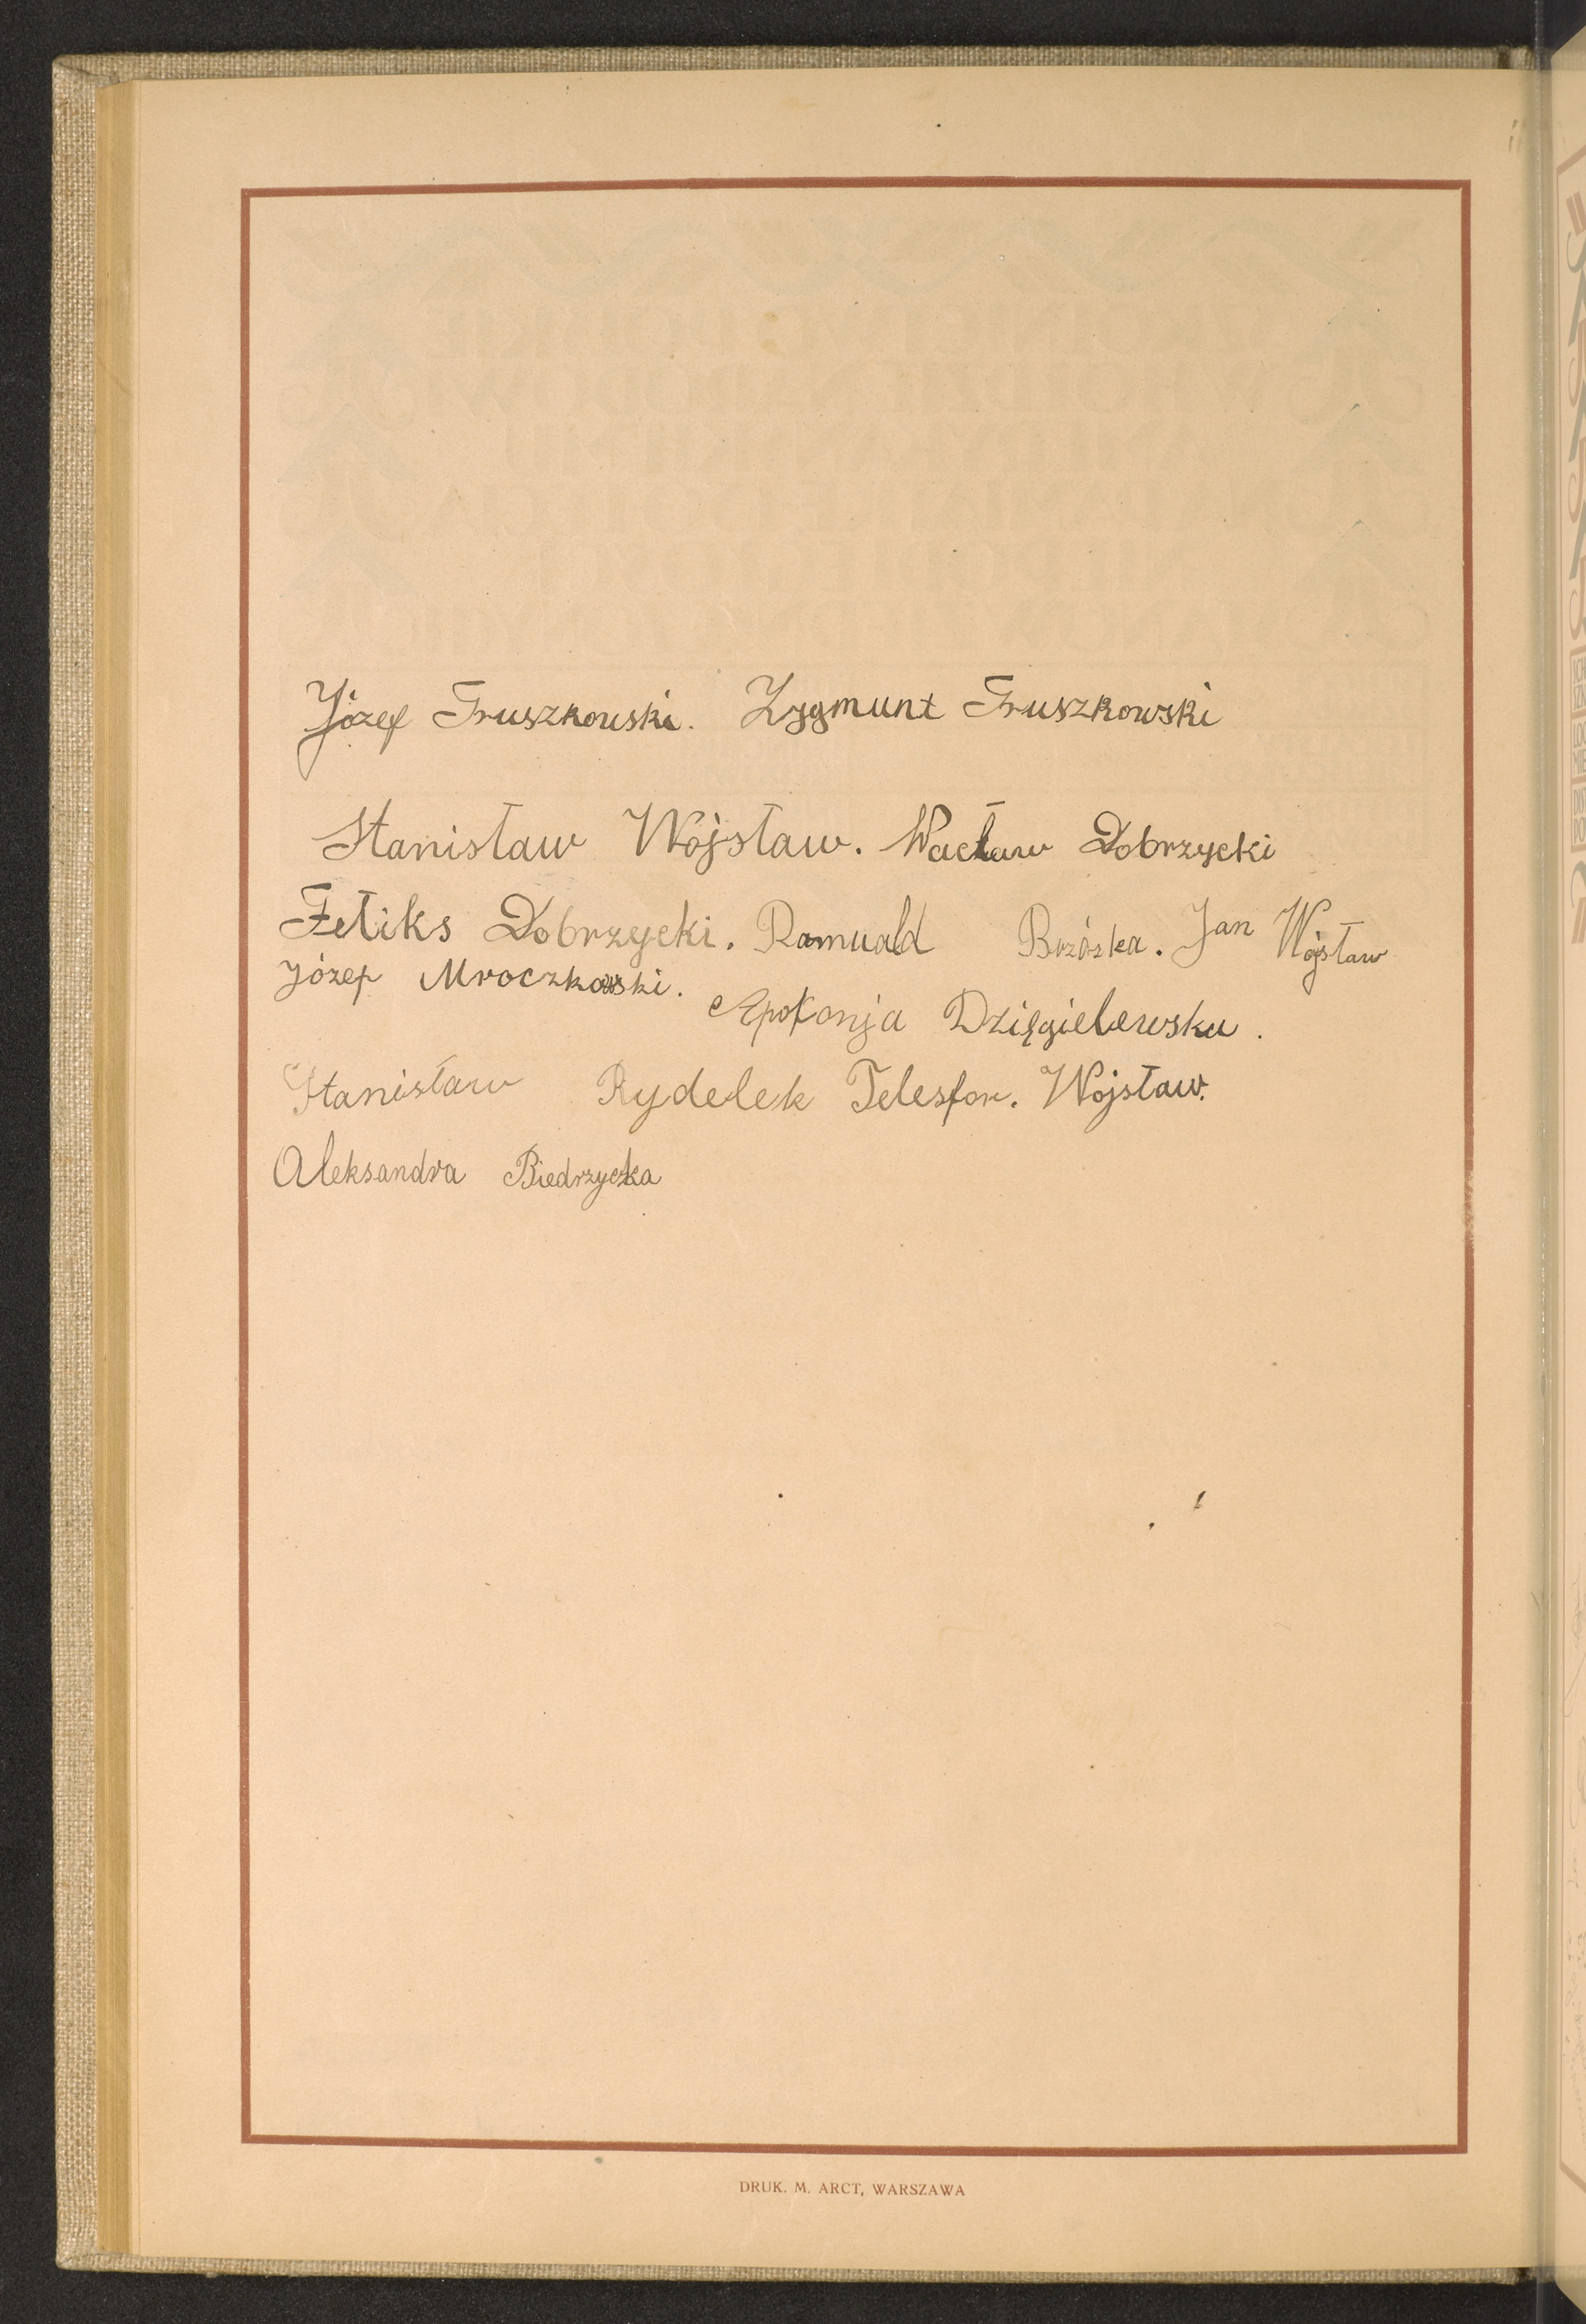 Józef Truszkowski. Zygmunt Truszkowski
Stanisław Wojsław. Wacław Dobrzycki
Feliks Dobrzycki. Romuald Brzóska. Jan Wojsław
Józef Mroczkowski.
Apolonja Dzięgielewska.
Stanisław Rydelek Telesfor. Wojsław.
Aleksandra Biedrzycka
DRUK. M. ARCT, WARSZAWA